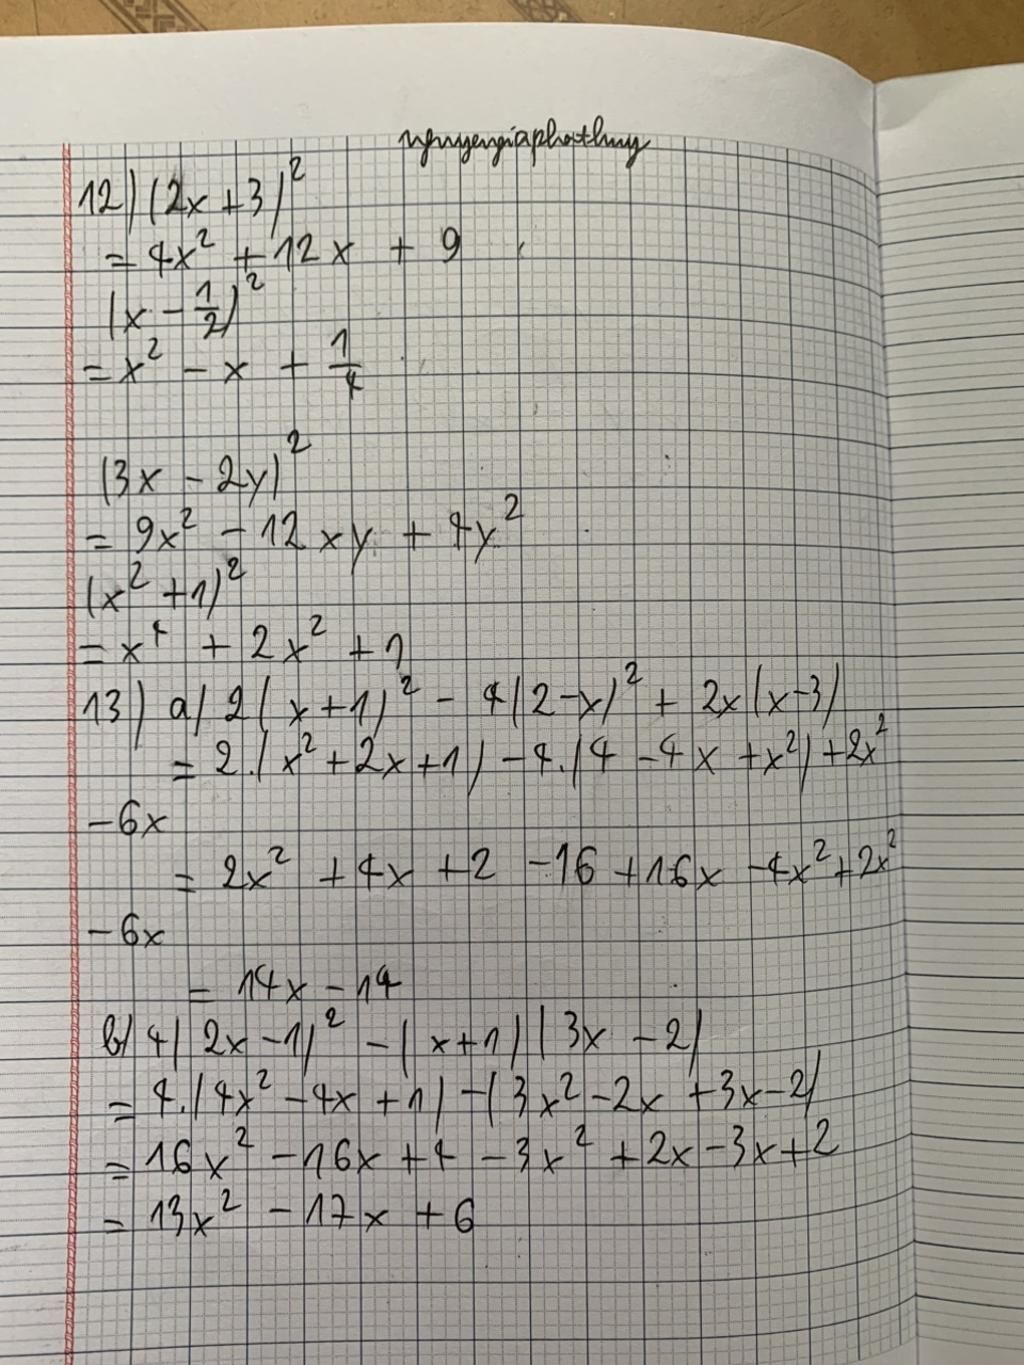 nguyengiaphathuy
12) (2x+3)²
= 4x² + 12x + 9
(x - 1/2)²
= x² - x + 1/4
(3x - 2y)²
= 9x² - 12xy + 4y²
(x² + 1)²
= x⁴ + 2x² + 1
13) a) 2(x+1)² - 4(2-x)² + 2x(x-3)
= 2.(x² + 2x + 1) - 4.(4 - 4x + x²) + 2x²
-6x
= 2x² + 4x + 2 - 16 + 16x - 4x² + 2x²
-6x
= 14x - 14
b) 4(2x - 1)² - (x+1)(3x - 2)
= 4.(4x² - 4x + 1) - (3x² - 2x + 3x - 2)
= 16x² - 16x + 4 - 3x² + 2x - 3x + 2
= 13x² - 17x + 6